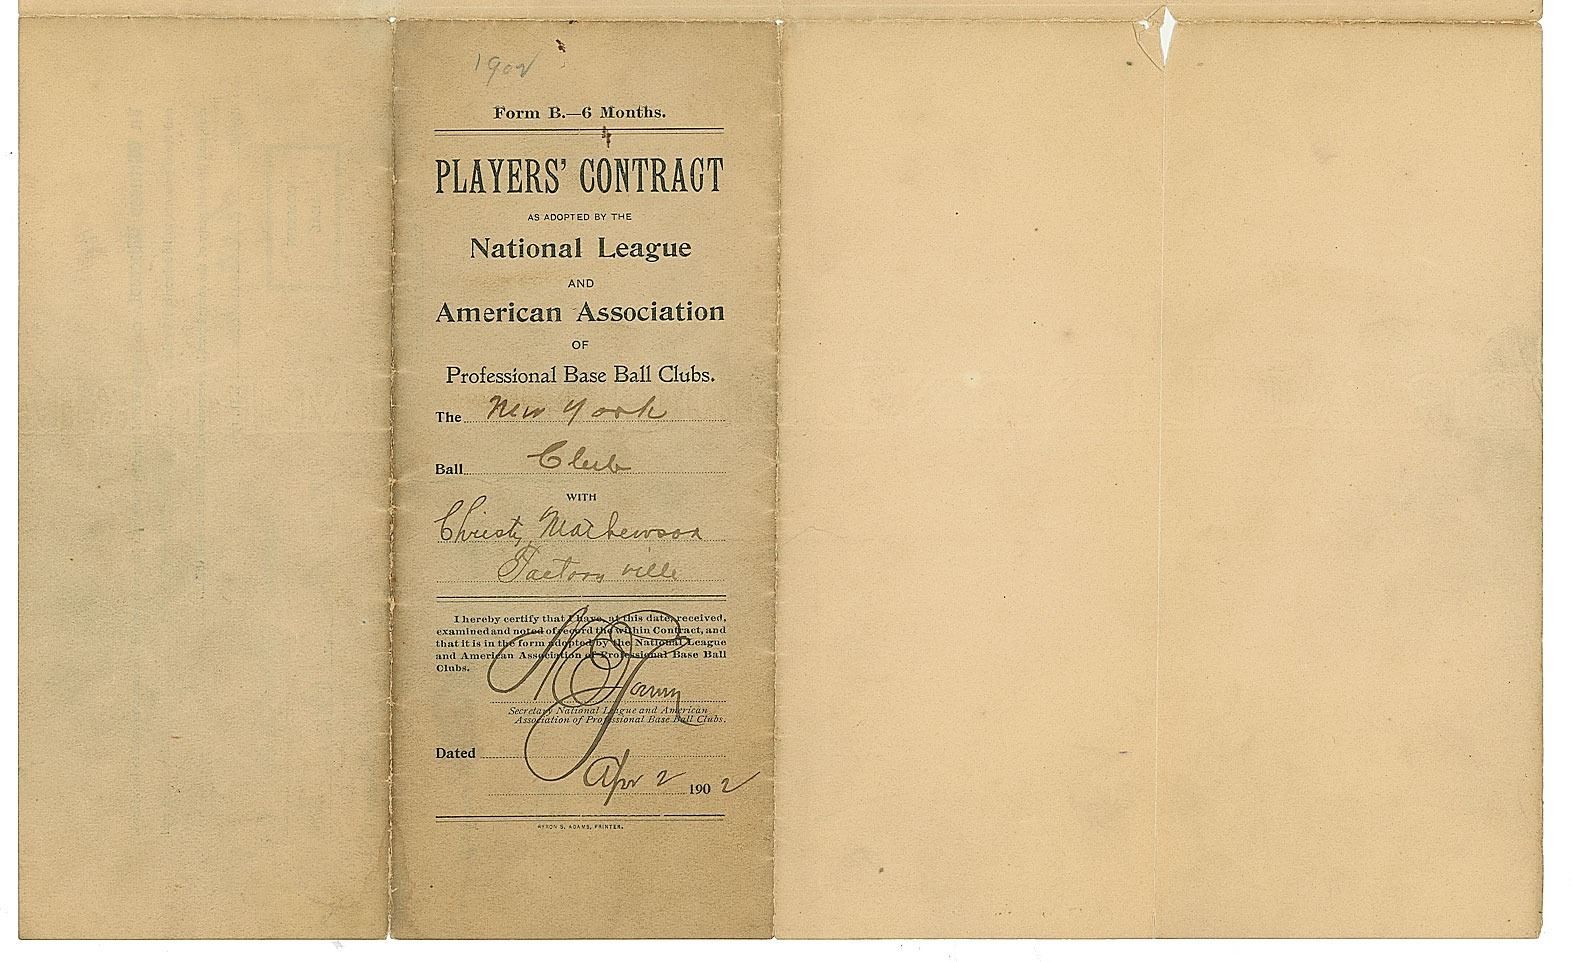 1902
Form B.—6 Months.
PLAYERS' CONTRACT
AS ADOPTED BY THE
National League
AND
American Association
OF
Professional Base Ball Clubs.
The New York
Ball Club
WITH
Christy Mathewson
Factoryville
I hereby certify that I have, at this date, received,
examined and noted of record the within Contract, and
that it is in the form adopted by the National League
and American Association of Professional Base Ball
Clubs.
Secretary National League and American
Association of Professional Base Ball Clubs.
Dated
Apr 2 1902
MYRON S. ADAMS, PRINTER.